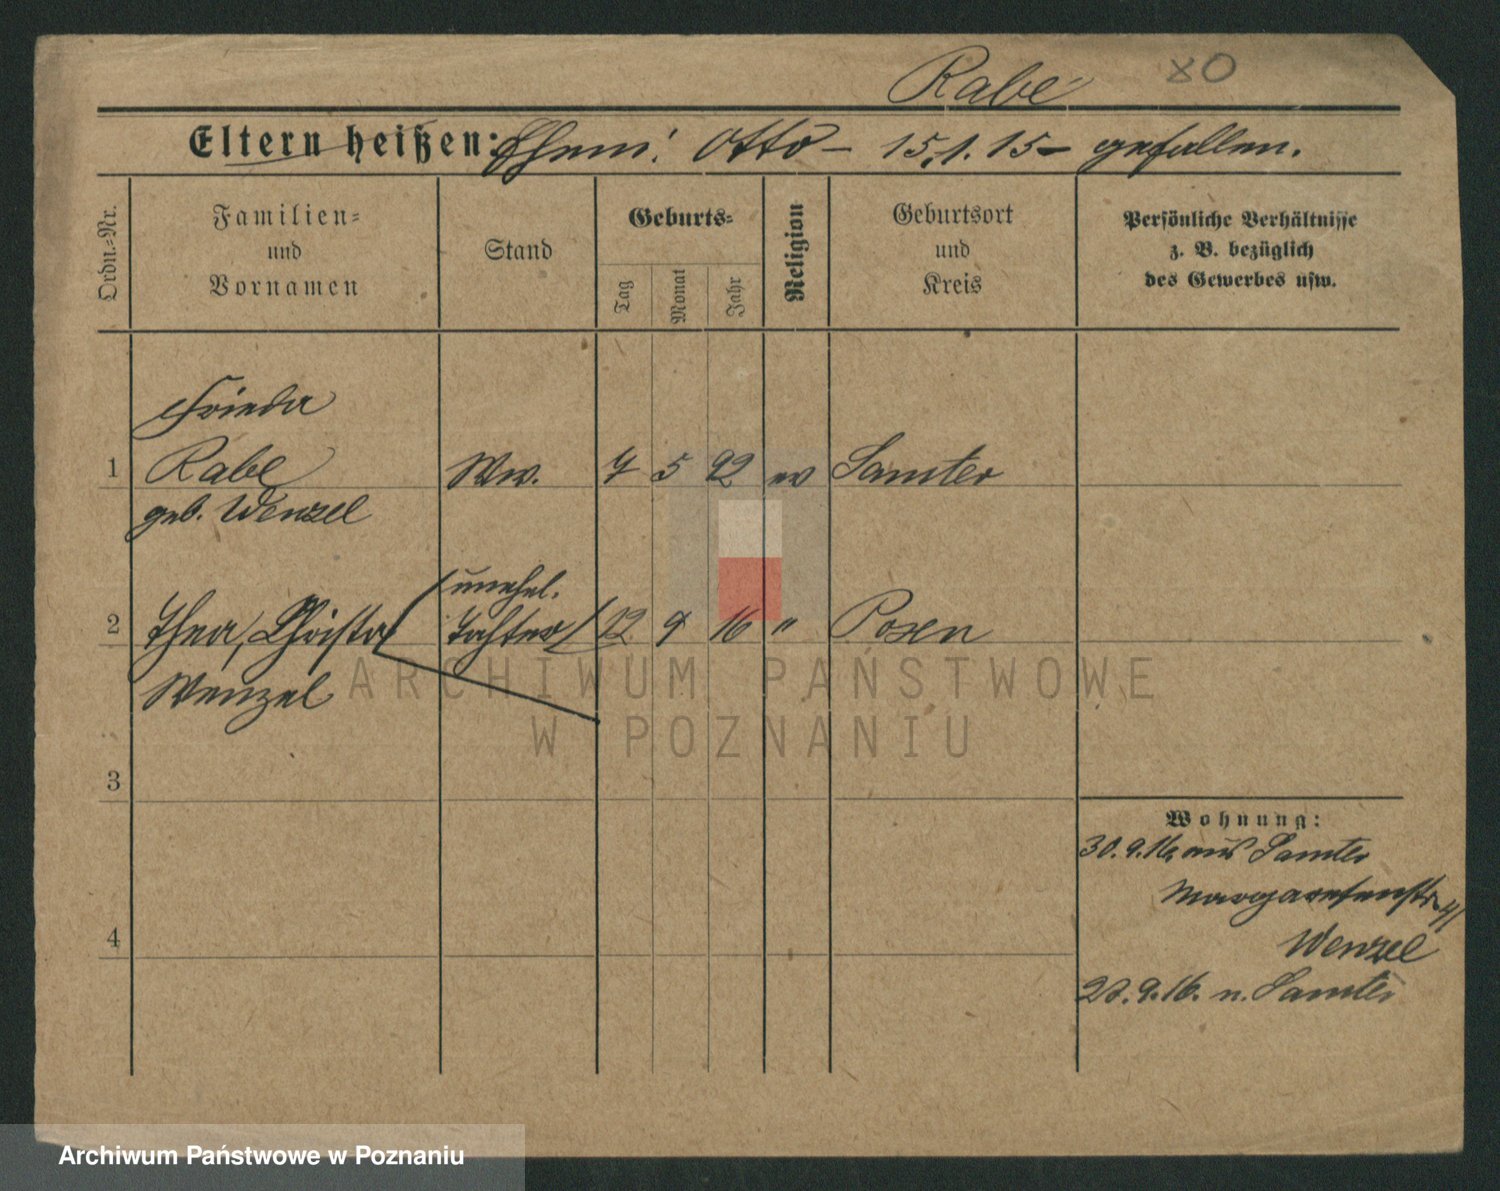 Rabe 80
Eltern heißen: Ehem: Otto – 15.1.15 – gefallen.
Ordn.=Nr.
Familien=
und
Vornamen
Stand
Geburts=
Tag
Monat
Jahr
Religion
Geburtsort
und
Kreis
Persönliche Verhältnisse
z. B. bezüglich
des Gewerbes usw.
Frieda
1 Rabe Ww. 7 5 92 ev Samter
geb. Wenzel
unehel.
2 Thea, Christa Tochter 12 9 16 " Posen
Wenzel
ARCHIWUM PAŃSTWOWE
W POZNANIU
3
Wohnung:
30.9.16 aus Samter
Margaretenstr
4
Wenzel
9.16. n. Samter
Archiwum Państwowe w Poznaniu